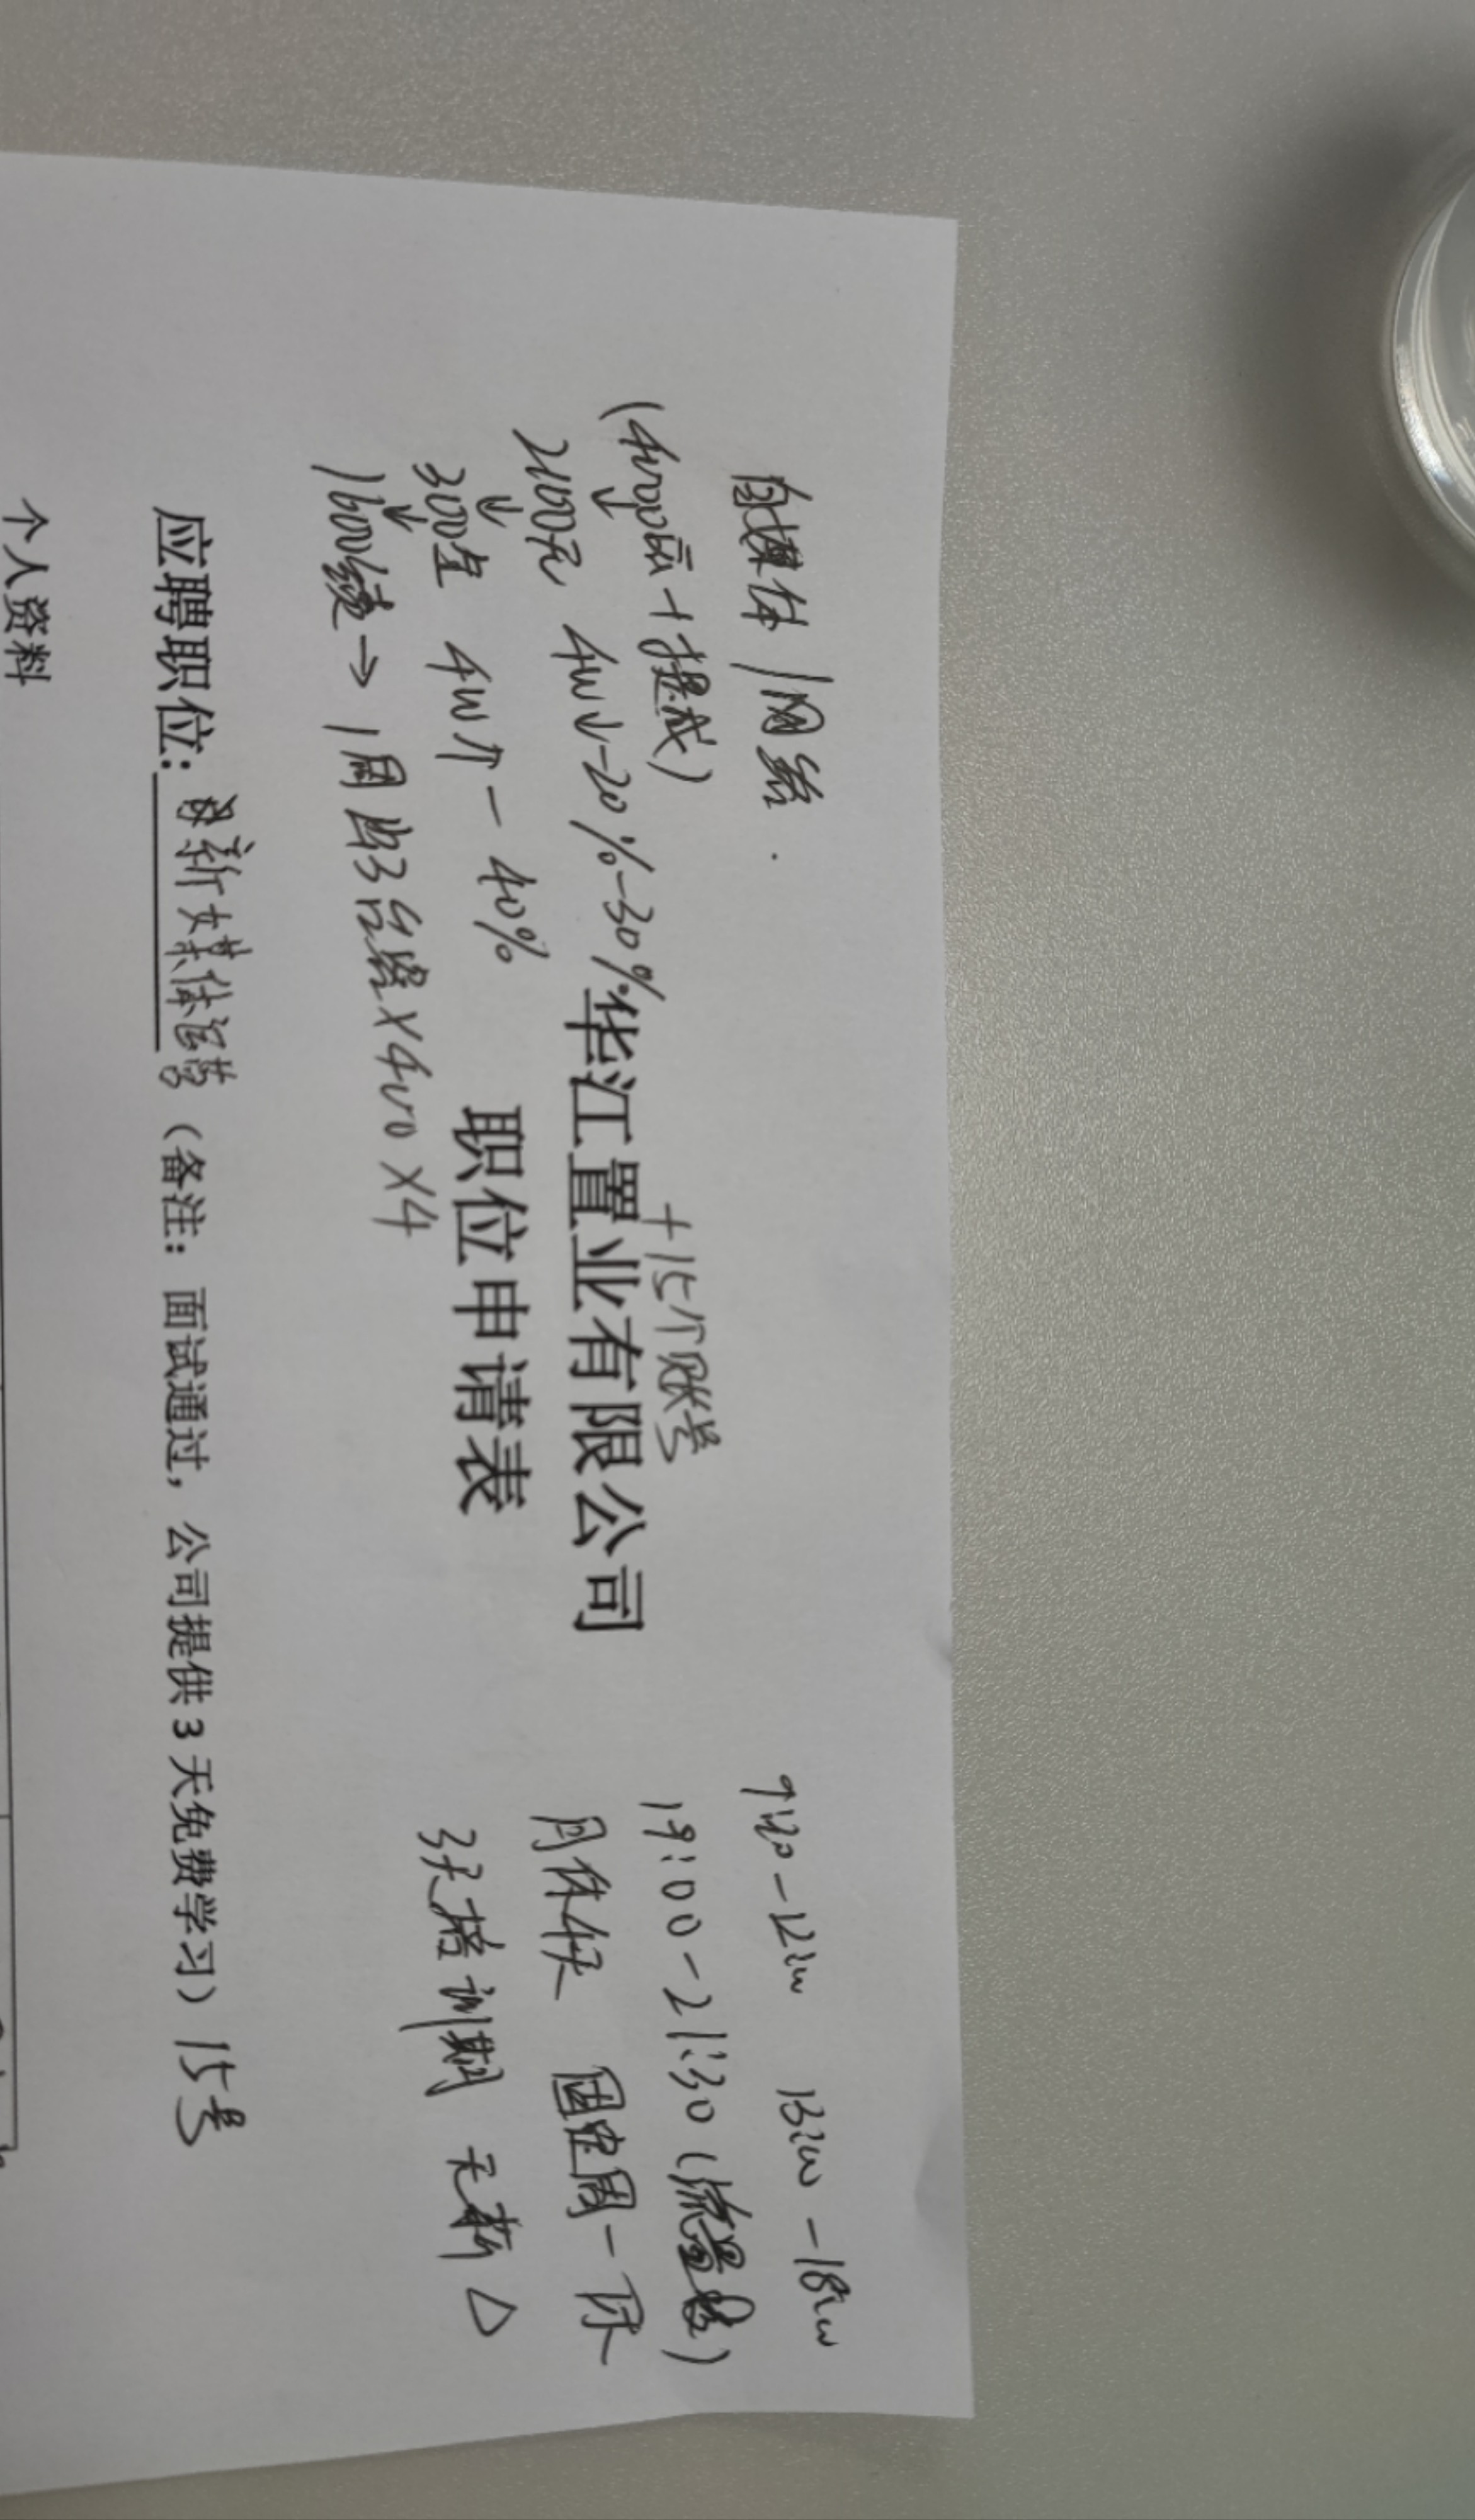 自媒体/网络.
9:20-12:00 13:00-18:00
(4000底+提成)
+15个账号
19:00-21:30(流量段)
2100元 4w↓-20%-30%
华江置业有限公司
月休4天 固定周一休
300全 4w个-40%
职位申请表
3天培训期 无薪△
1600绩→1周 3台 ×400×4
应聘职位:新媒体运营(备注:面试通过,公司提供3天免费学习)15号
个人资料